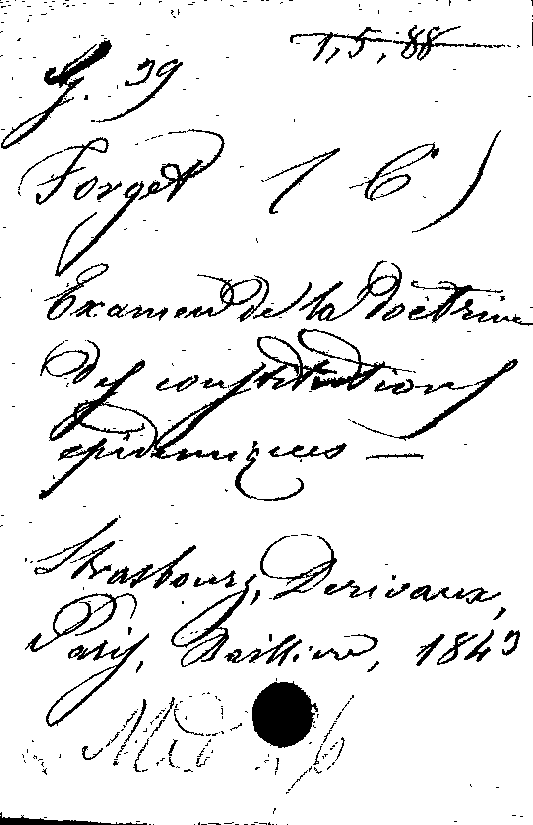 1,5,88
G. 39
Forget (C)
Examen de la doctrine
des constitutions
épidemiques —
Strasbourg, Derivaux,
Paris, Baillière, 1843
Med